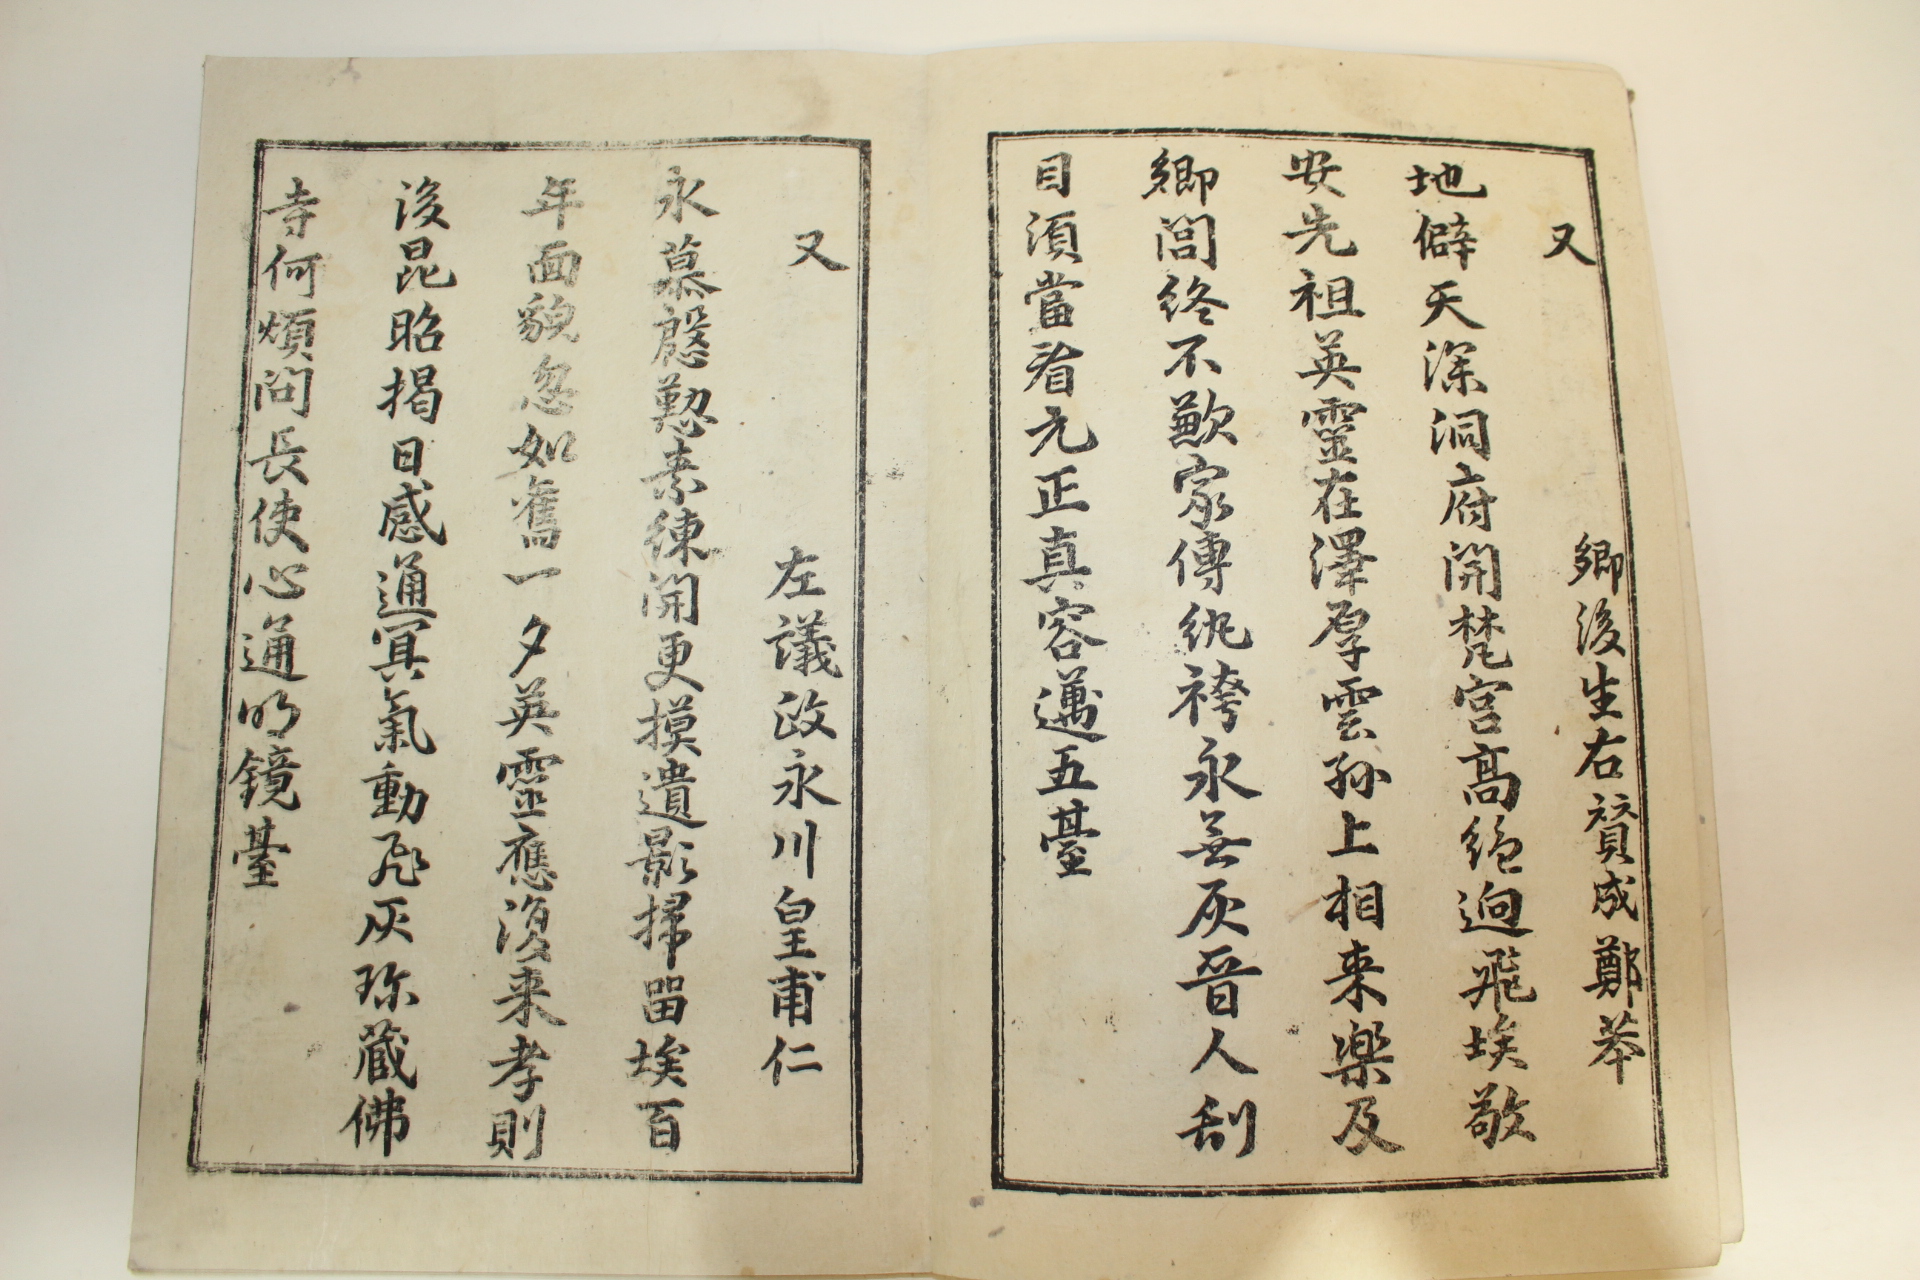 又
鄉後生右贊成鄭苯
地僻天深洞府開梵宮高絶逈飛埃敬
安先祖英靈在澤厚雲孫上相来樂及
鄉閭終不歉家傳紈袴永無灰晉人刮
目須當看元正真容邁五臺
又
左議政永川皇甫仁
永慕慇懃素練開更摸遺影掃留埃百
年面貌忽如舊一夕英靈應復来孝則
後昆昭揭日感通冥氣動飛灰珎藏佛
寺何煩問長使心通明鏡臺